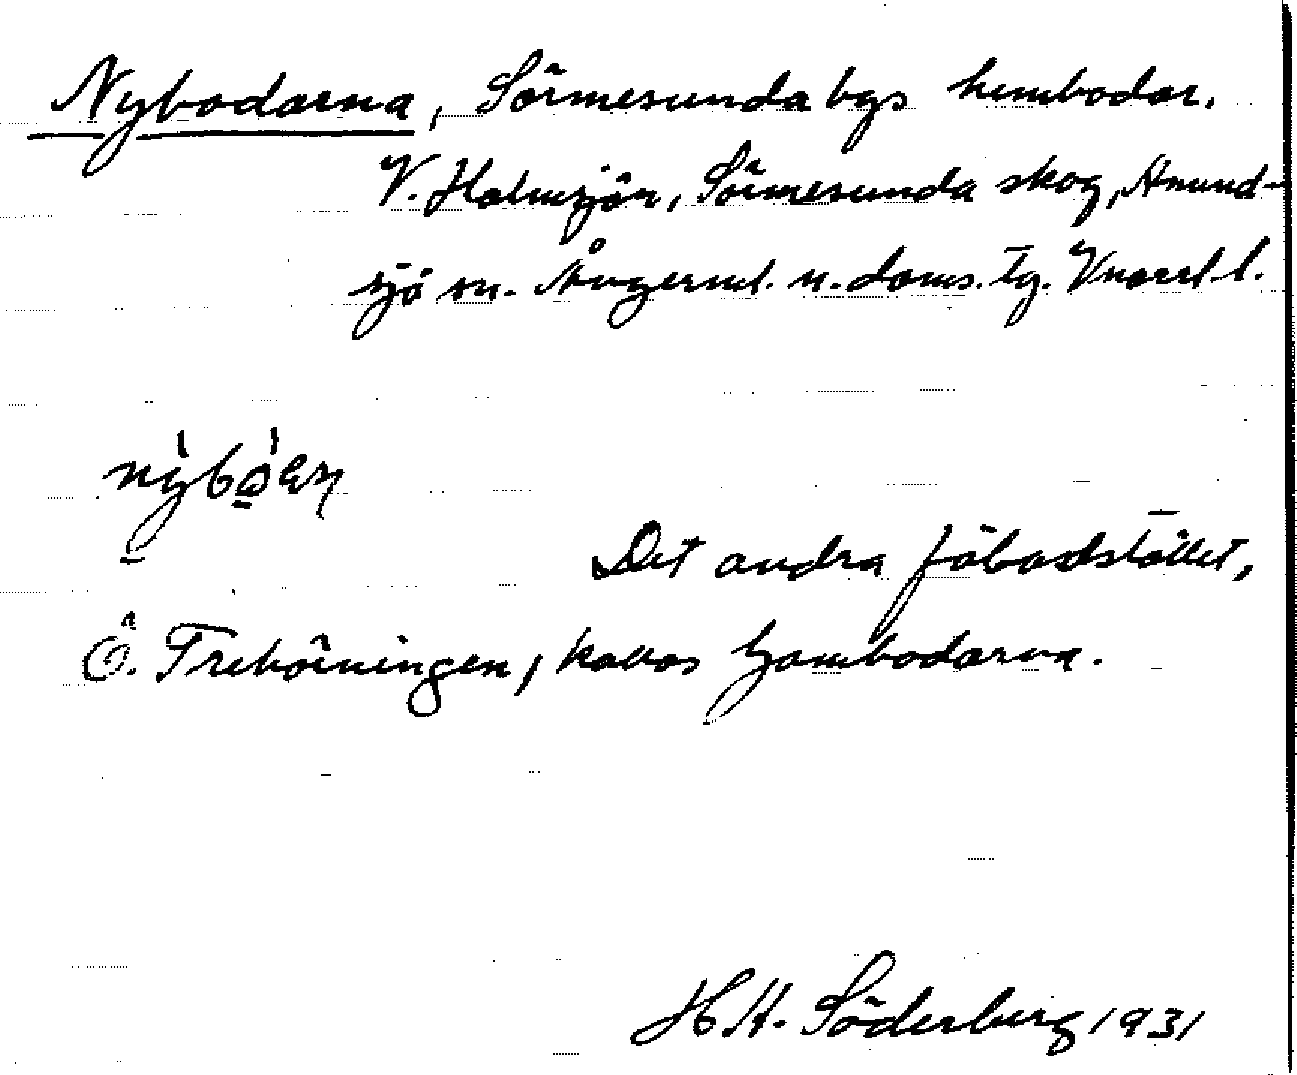 Nybodarna, Sörmesunda bys hembodar.
V. Holmsjön, Sörmesunda skog, Anund-
sjö sn. Ångerml. n. doms. tg. Vnorrl l.
Det andra fäbodstället,
Ö. Trehörningen, kallas Gambodarna.
H. H. Söderberg 1931